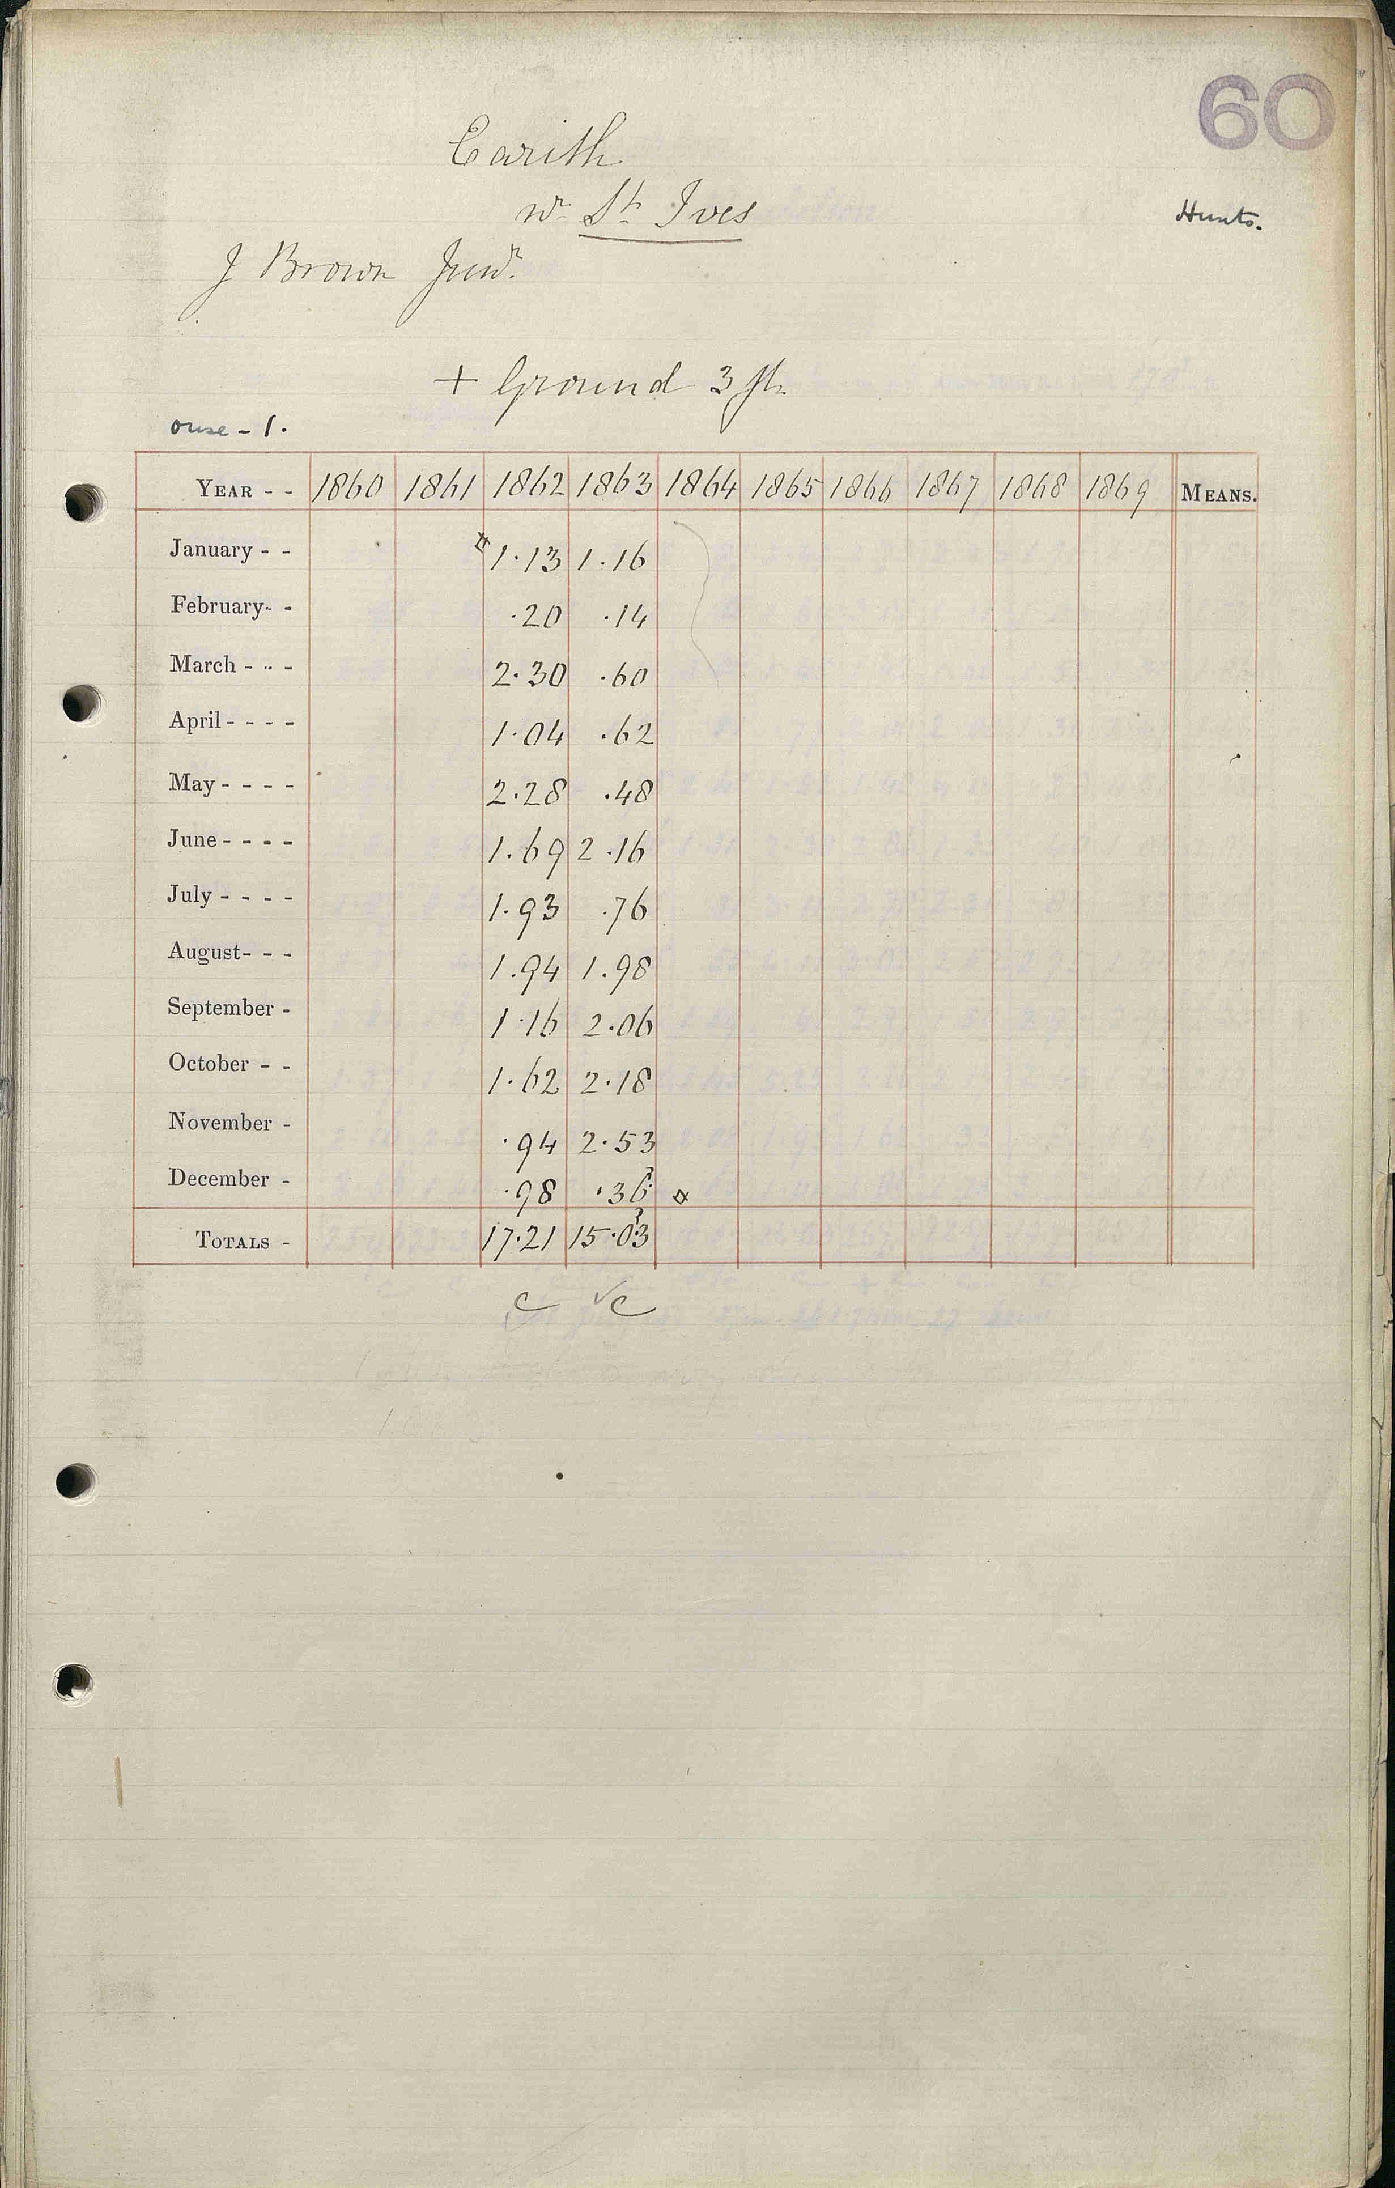 60
Earith
nr St Ives
Hunts.
J Brown Junr.
+ Ground 3 ft
ouse - 1.
YEAR - - 1860 1861 1862 1863 1864 1865 1866 1867 1868 1869 MEANS.
January - - ¤ 1.13 1.16
February - - .20 .14
March - - - 2.30 .60
April - - - - 1.04 .62
May - - - - 2.28 .48
June - - - - 1.69 2.16
July - - - - 1.93 .76
August - - - 1.94 1.98
September - 1.16 2.06
October - - 1.62 2.18
November - .94 2.53
December - .98 .36 ¤
TOTALS - 17.21 15.03
c ✓c